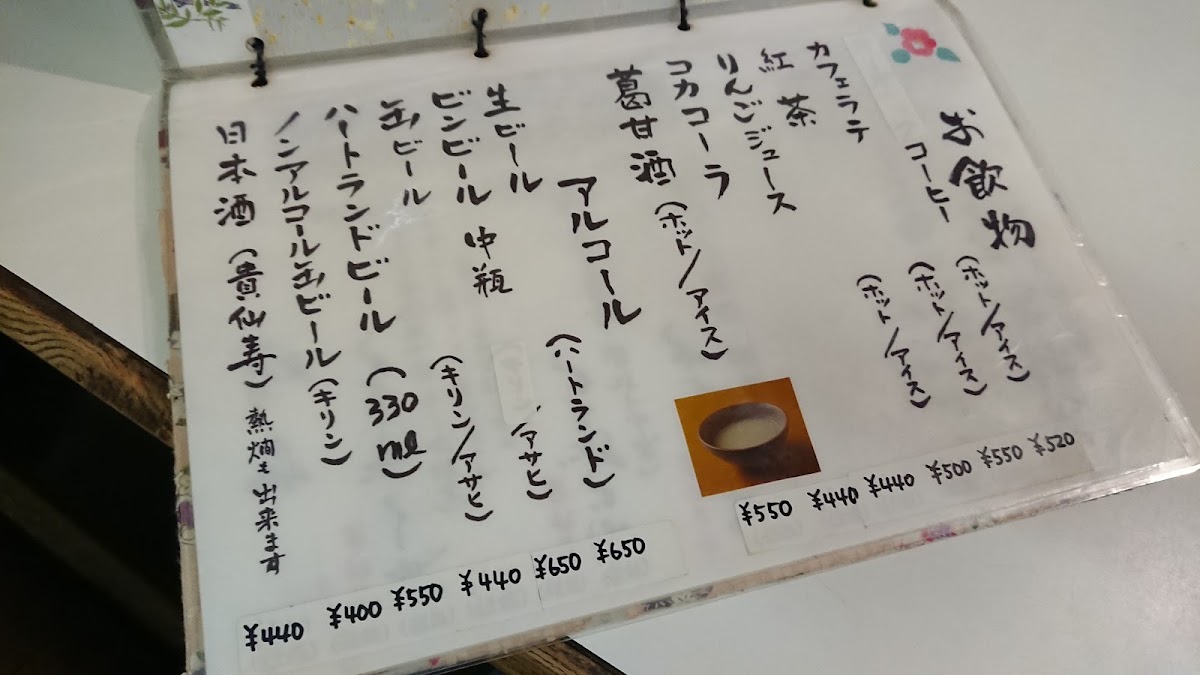 お飲物
コーヒー (ホット/アイス) ¥520
カフェラテ (ホット/アイス) ¥550
紅茶 (ホット/アイス) ¥500
りんごジュース ¥440
コカコーラ ¥440
葛甘酒 (ホット/アイス) ¥550
アルコール
生ビール (ハートランド) ¥650
ビンビール 中瓶 /アサヒ) ¥650
缶ビール (キリン/アサヒ) ¥440
ハートランドビール (330ml) ¥550
ノンアルコール缶ビール (キリン) ¥400
日本酒 (貴仙寿) 熱燗も出来ます ¥440